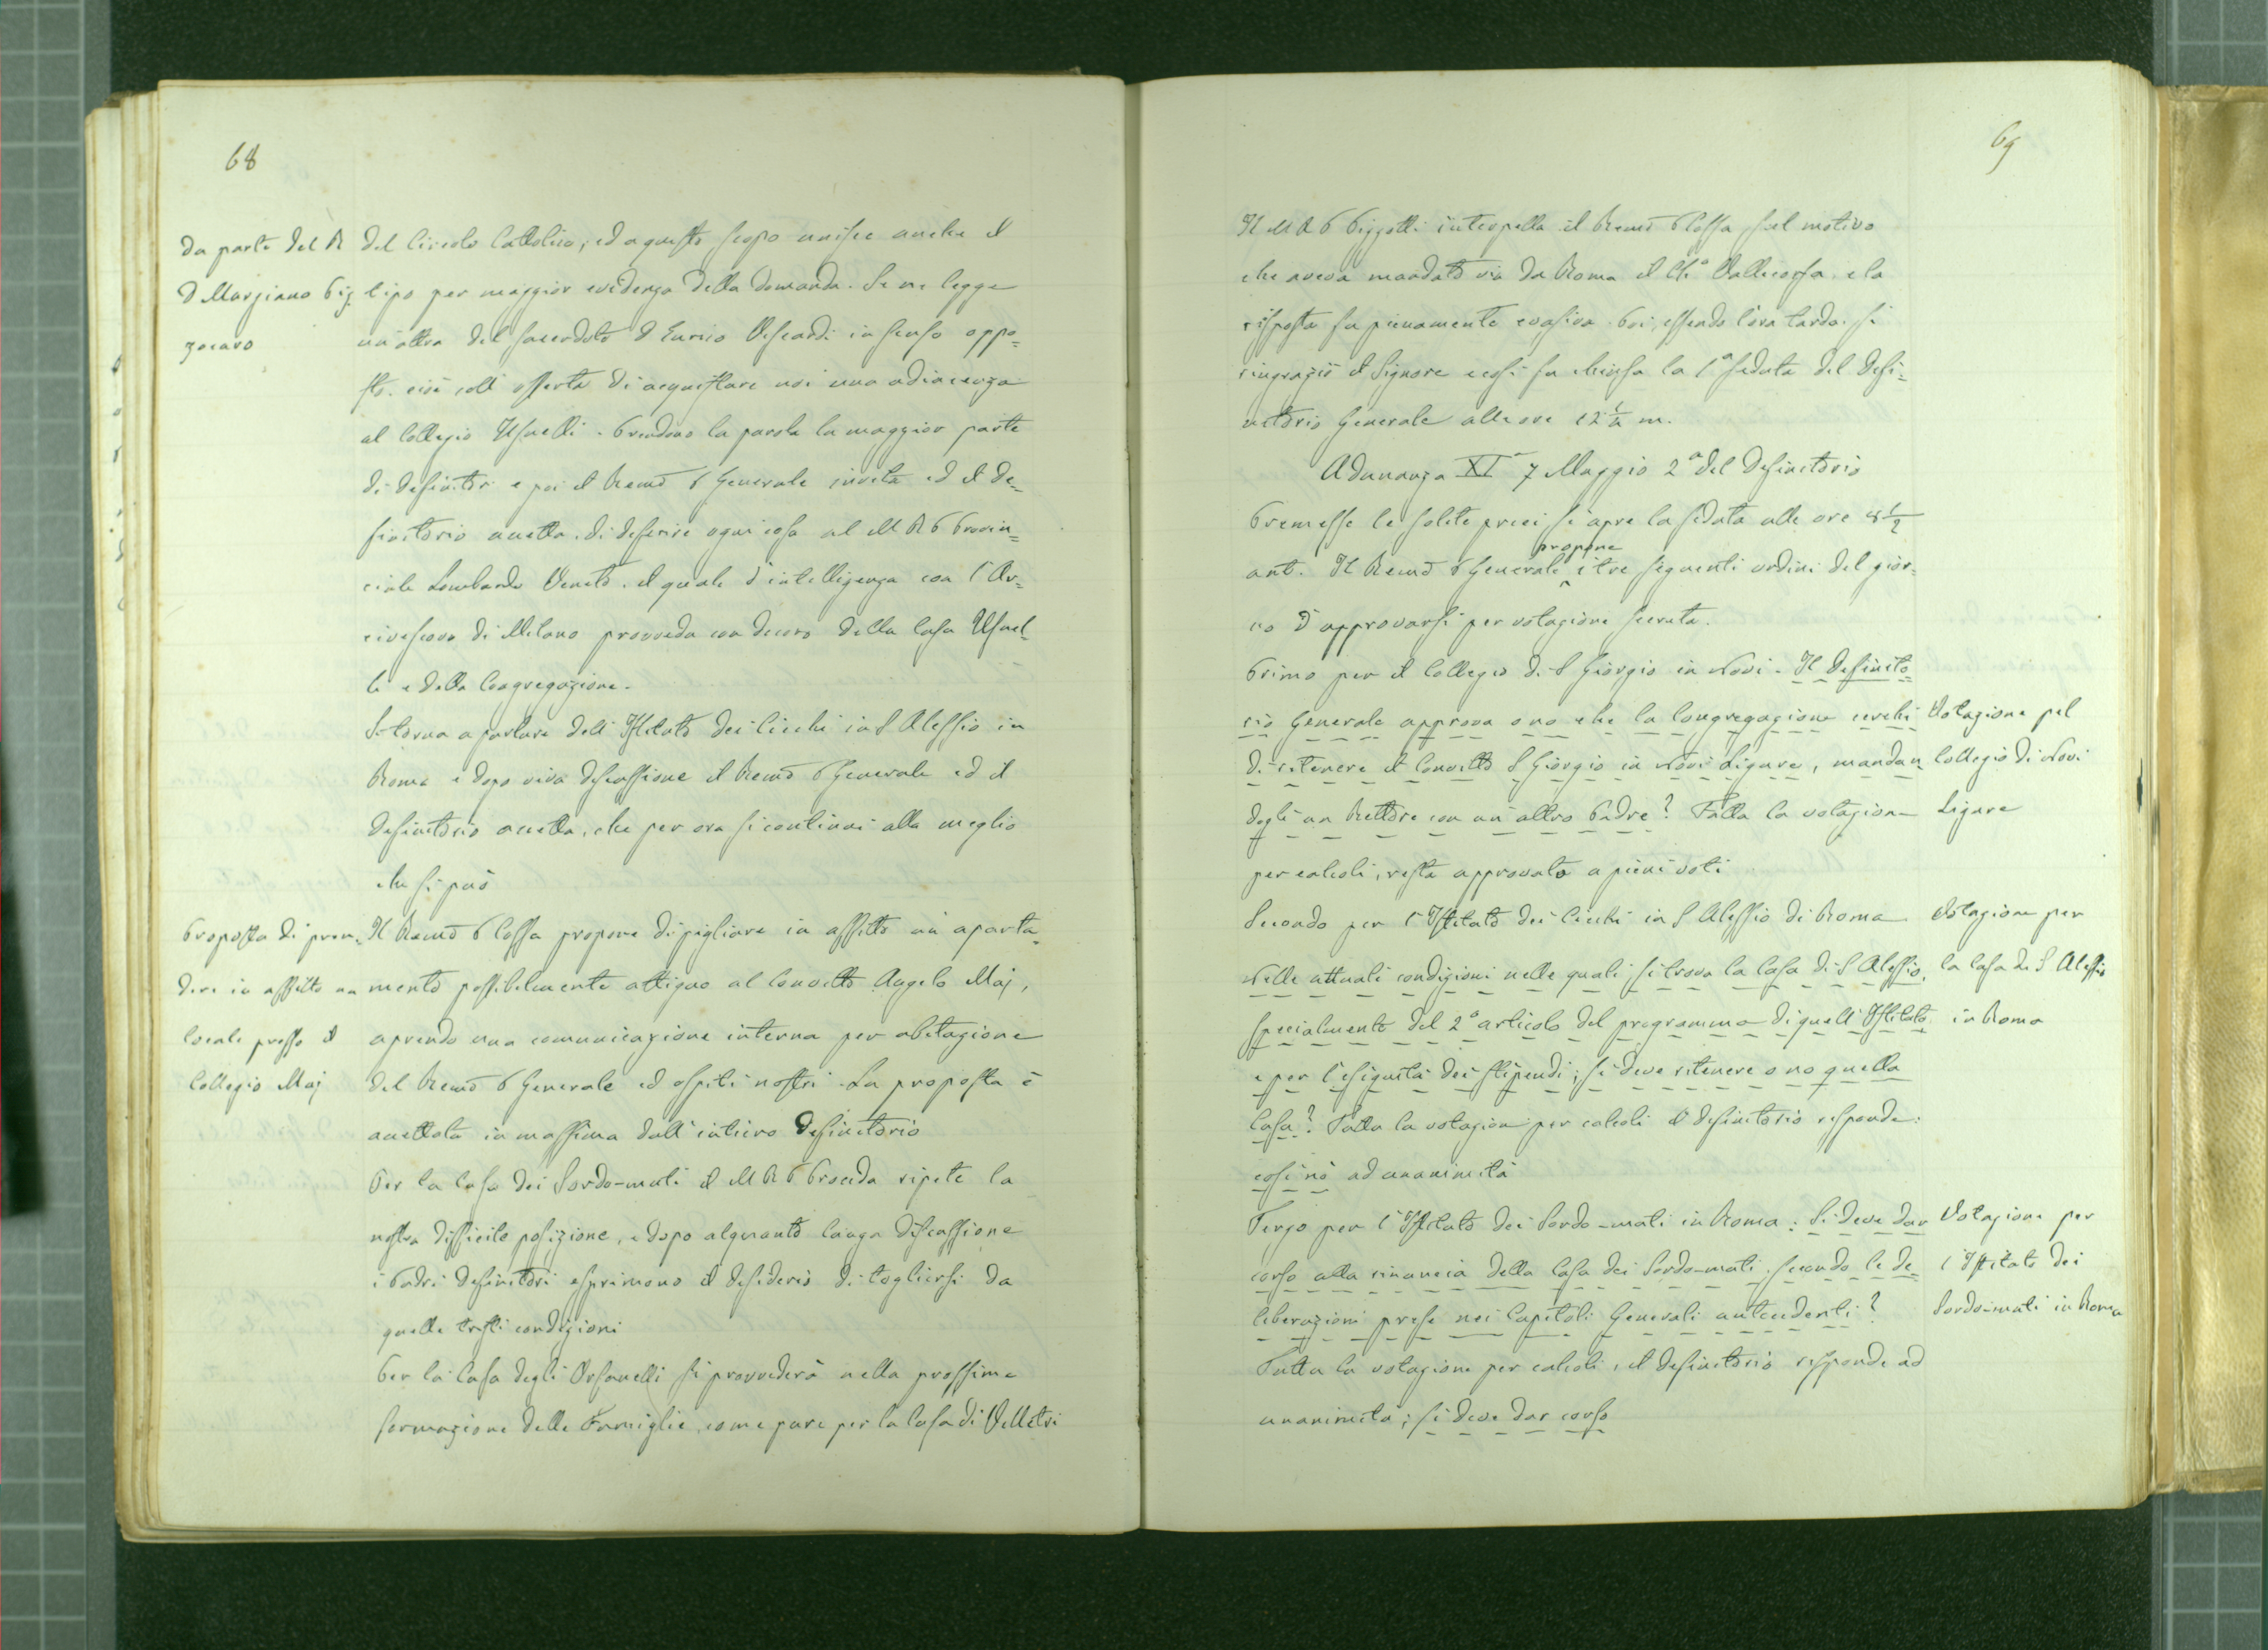 68
da parte del R
D Marziano Biz
zocaro
del Circolo Cattolico, ed a questo scopo unisce anche il
tipo per maggior evidenza della domanda. Se ne legge
un'altra del sacerdote D Enrico Viscardi in senso oppo=
sto. cioè coll'offerta di acquistare noi una adiacenza
al Collegio Usuelli. Prendono la parola la maggior parte
di definitori e poi il Remo P Generale invita ed il De=
finitorio accetta. di deferire ogni cosa al M R P Provin=
ciale Lombardo Veneto. il quale d'intelligenza con l'Ar=
civescovo di Milano provveda con decoro della Casa Usuel=
li e della Congregazione.
Si torna a parlare dell'Istituto dei Ciechi in S Alessio in
Roma e dopo viva discussione il Remo P Generale ed il
Definitorio accetta, che per ora si continui alla meglio
che si può
Proposta di pren=
dere in affitto un
locale presso il
Collegio Maj
Il Remo P Cossa propone di pigliare in affitto un aparta=
mento possibilmente attiguo al Convitto Angelo Maj,
aprendo una comunicazione interna per abitazione
del Remo P Generale ed ospiti nostri. La proposta è
accettata in massima dall'intiero Definitorio
Per la Casa dei Sordo-muti il M R P Procida ripete la
nostra difficile posizione, e dopo alquanto lunga discussione
i Padri definitori esprimono il desiderio di togliersi da
quelle tristi condizioni
Per la Casa degli Orfanelli si provvederà nella prossima
formazione delle Famiglie, come pure per la Casa di Velletri
69
Il M R P Pizzotti interpella il Remo P Cossa sul motivo
che aveva mandato via da Roma il Ch.º Vallecorsa. e la
risposta fu pienamente evasiva. Poi, essendo l'ora tarda. si
ringraziò il Signore e così fu chiusa la 1ª seduta del Defi=
nitorio Generale alle ore 12 1/2 m.
Adunanza XIª 7 Maggio 2ª del Definitorio
Premesse le solite preci si apre la seduta alle ore 8 1/2
ant. Il Remo P Generale propone i tre seguenti ordini del gior=
no d'approvarsi per votazione secreta.
Primo per il Collegio di S Giorgio in Novi. Il Definito=
rio Generale approva o no che la Congregazione cerchi
di ritenere il Convitto S Giorgio in Novi Ligure, mandan=
dogli un Rettore con un altro Padre? Fatta la votazione
per calcoli, resta approvato a pieni voti
Votazione pel
Collegio di Novi
Ligure
Secondo per l'Istituto dei Ciechi in S Alessio di Roma
Nelle attuali condizioni nelle quali si trova la Casa di S Alessio,
specialmente del 2º articolo del programma di quell'Istituto
e per l'esiguità dei stipendi; si deve ritenere o no quella
Casa? Fatta la votazione per calcoli il definitorio risponde:
così nò ad unanimità
Votazione per
la Casa di S Alessio
in Roma
Terzo per l'Istituto dei Sordo-muti in Roma: Si deve dar
corso alla rinuncia della Casa dei Sordo-muti, secondo le de=
liberazioni prese nei Capitoli Generali antecedenti?
Fatta la votazione per calcoli, il definitorio risponde ad
unanimità; si deve dar corso
Votazione per
l'Istituto dei
Sordo-muti in Roma